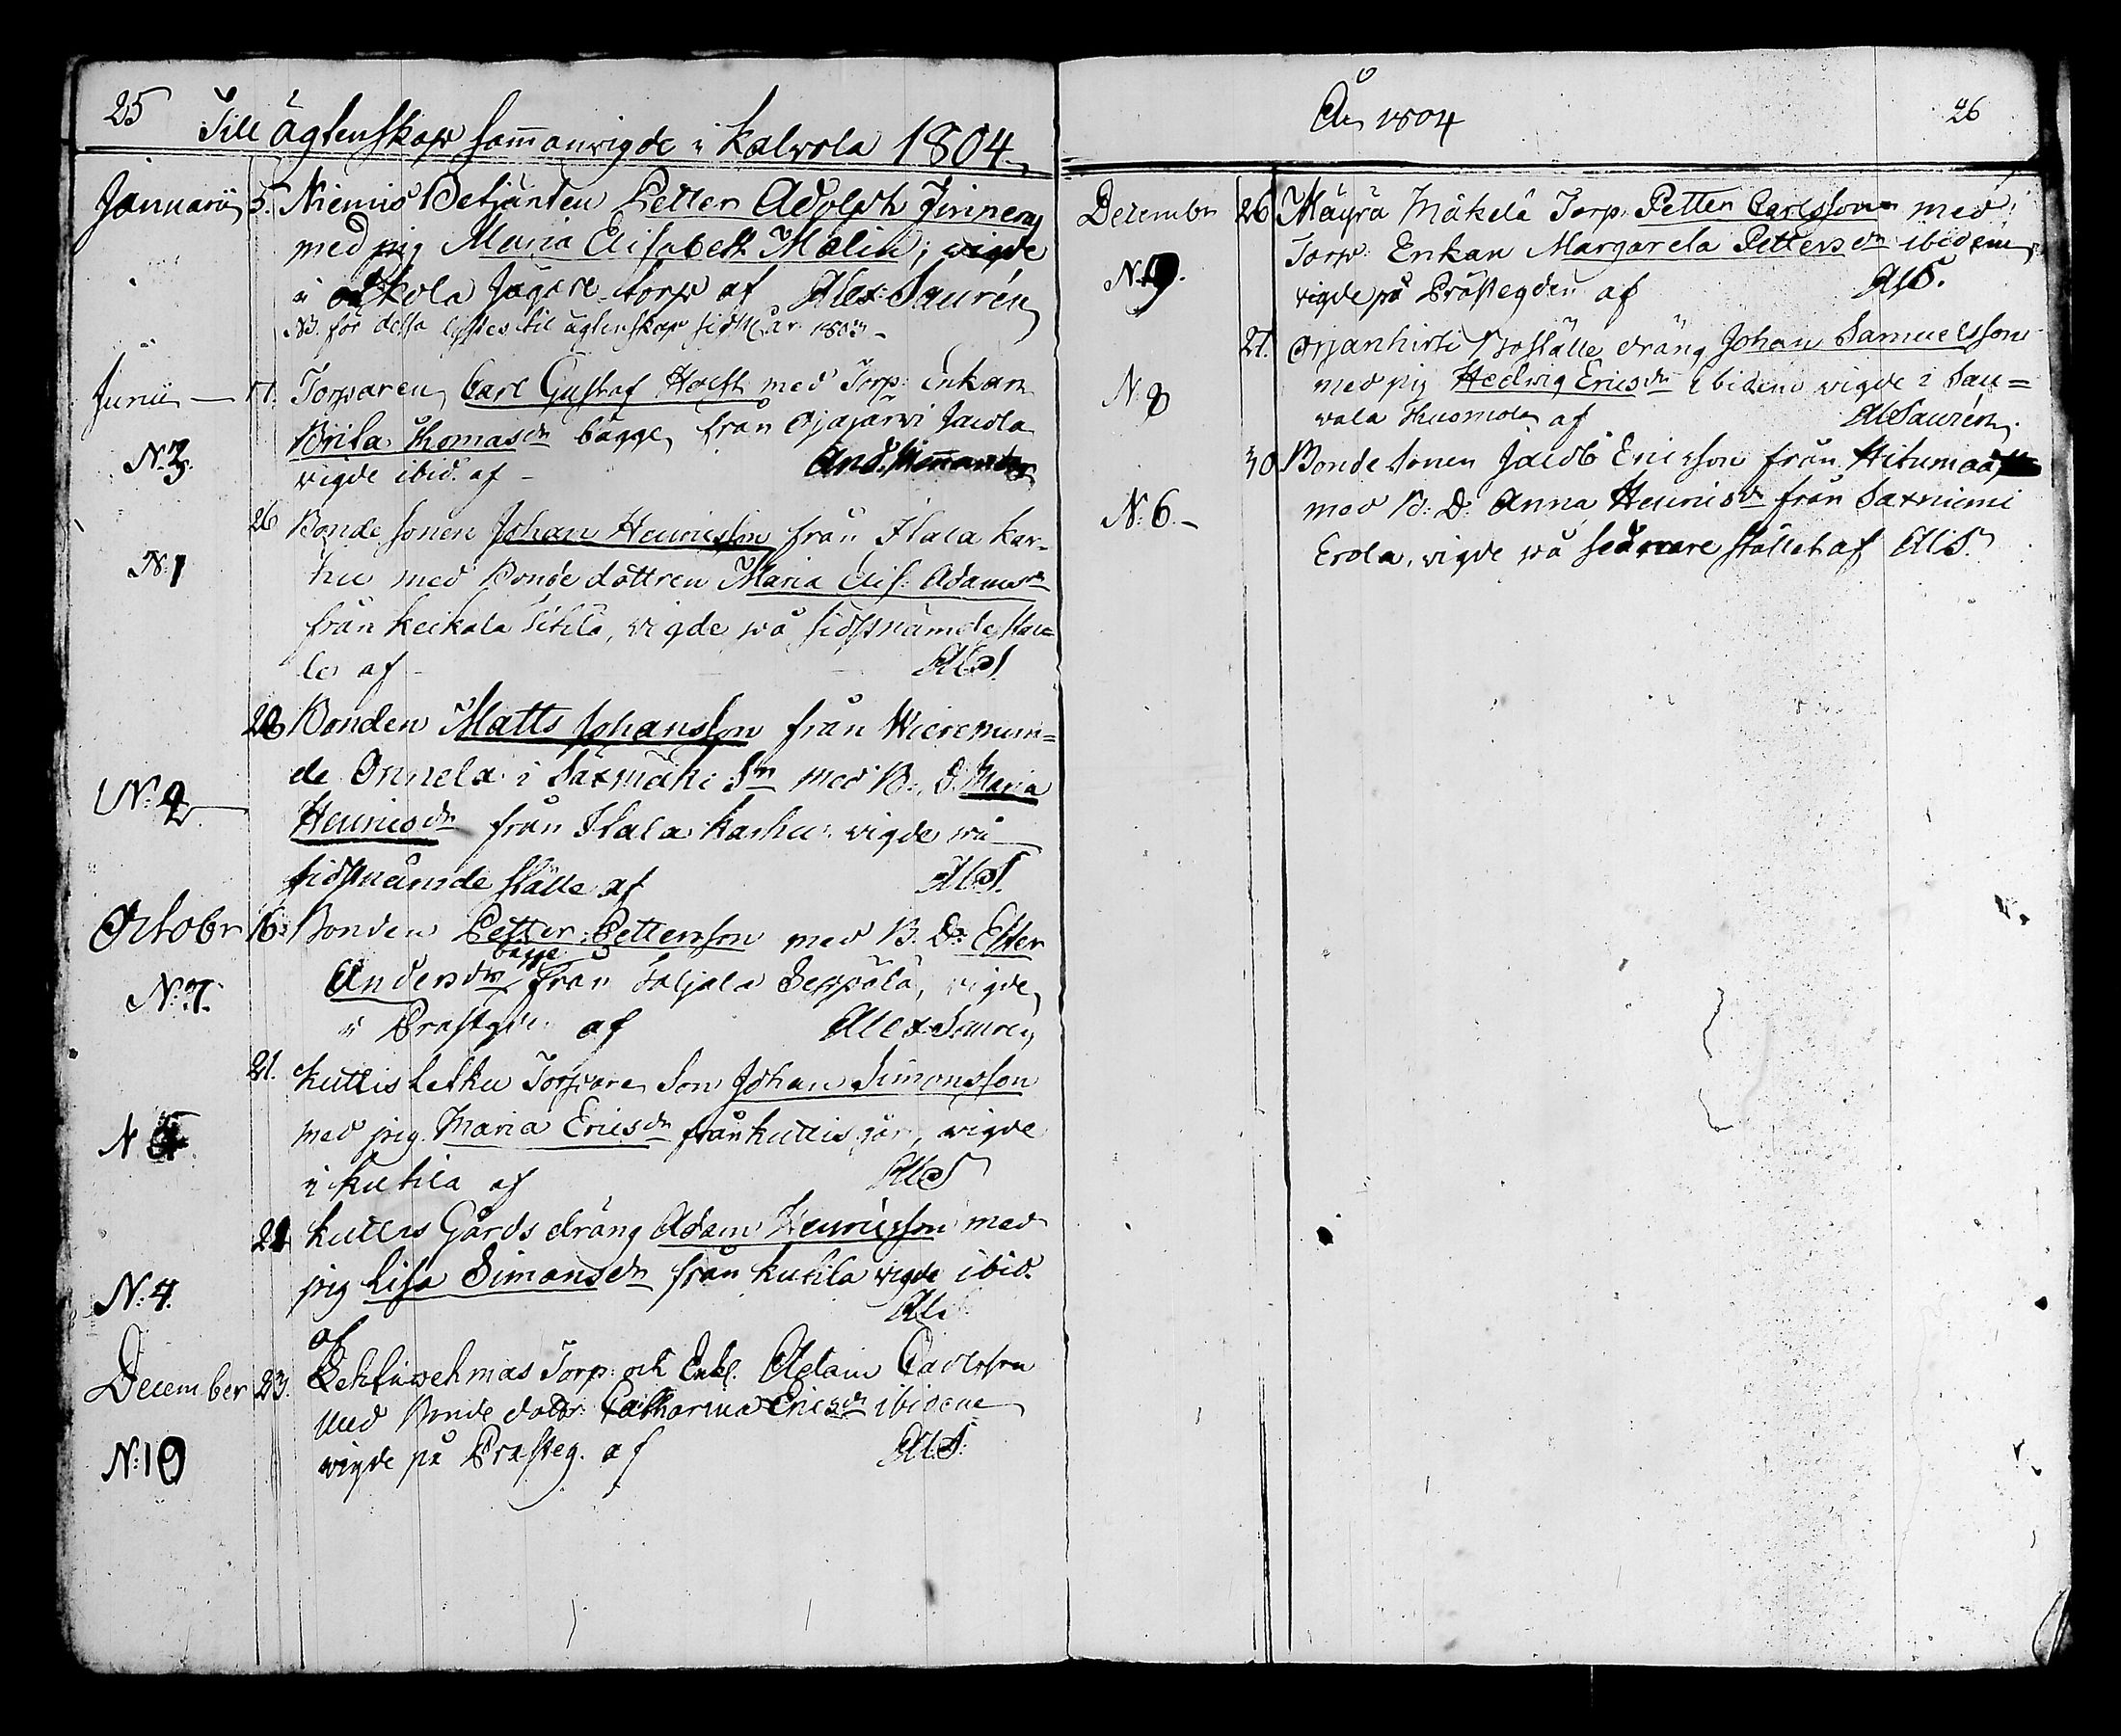 25
Till ägtenskap sam̄anvigde i Kalvola 1804
Januarii 5. Niemis Betjänten Petter Adolph
med pig Maria Elisabeth Malin; vigde
i Jägare torp af Alex: Saurén
NB. för dessa lystes til ägtenskap sidstl. år 1803
Junii 17. Torparen Carl Gustaf med Torp: Enkan
N:3. Brita Thomasdr bägge från Ojajärvi Jacola
vigde ibid. af
26 Bonde sonen Johan Henricsson från Ilala Kar-
N:1 hu med Bonde dottren Maria Elis: Adamsdr
från Keikala vigde på sidstnämde stäl-
le af Al:S.
Bonden Matts Johansson från
N:2 de Onnela i Saxmäki Sn med B: D: Maria
Henricsdr från Ilala Karhu vigde på
sidstnämde ställe af Al:S.
October 16. Bonden Petter Pettersson med B. Dr Ester
Andersdr bägge från Taljala Seppälä, vigde
N:7. i Prästgn af Alex: Saurén
21. Kuttis Letku Torpare Son Johan Simonsson
N med pig. Maria Ericsdr från Kuttis går, vigde
i Kutila af Al:S
21 Kuttis Gårds dräng Adam Henricsson med
N:4. pig Lisa Simonsdr från Kutila vigde ibid.
af Al:S
December 23. Torp: och Enkl. Adam Carlsson
med Bonde dottr: Catharina Ericsdr ibidem
N:10 vigde på Prästeg. af Al.S:
År 1804
26
December 26 Mäyrä Mäkelä Torp: Petter Carlsson med
Torp: Enkan Margareta Pettersdr ibidem
N:9. vigde på Prästegden af AlS.
27. Orjanhirsi Boställe dräng Johan Samuelsson
N:8 med pig Hedwig Ericsdr ibidem vigde i Sau=
vala Huomola af AlSaurén.
30 Bonde sonen Jacob Ericsson från
N:6.- med B: D: Anna Henricsdr från Saxniemi
Erola, vigde på sednare stället af Al:S.